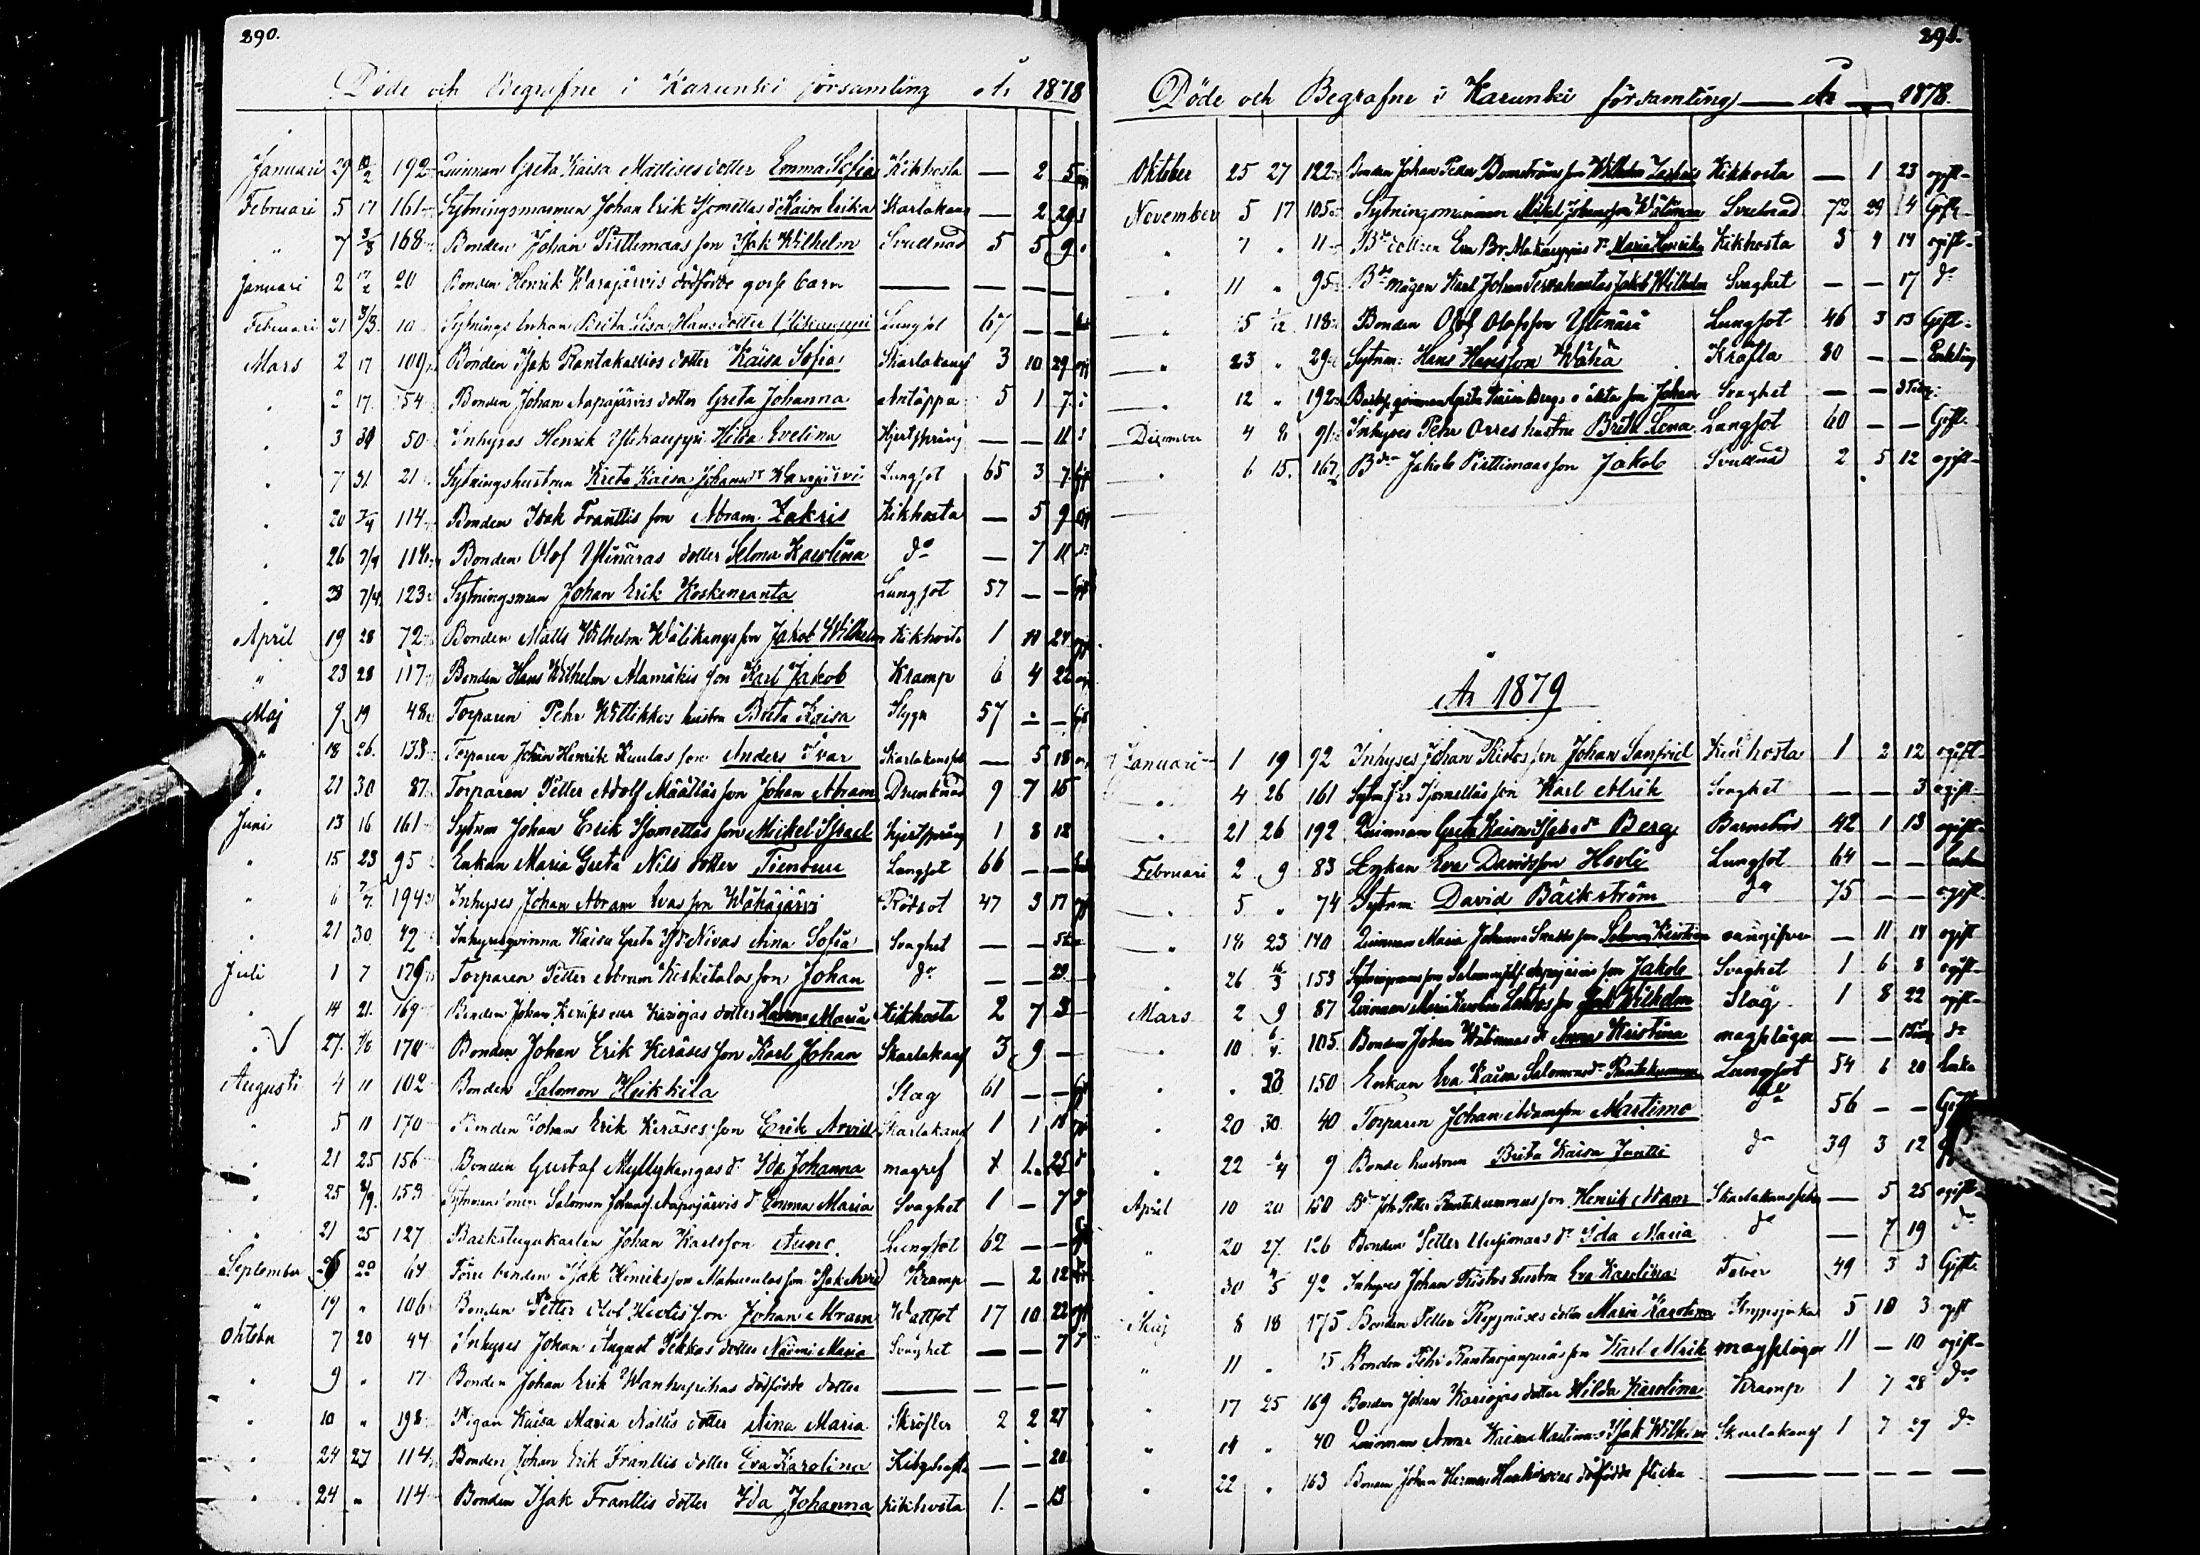 290.
Döde och Begrafne i Karunki församling År 1878
Januari 29 10/2 192 Qvinnan Greta Kaisa Mattisesdotter Emma Sofia Kikhosta — 2 5
Februari 5 17 161 Sytningsmannen Johan Erik Isomettas d Kaisa Erika Skarlakans — 2 29
" 7 3/3 168 Bonden Johan Pirttimaas son Isak Wilhelm Svullnad 5 5 9
Januari 2 17/2 20 Bonden Henrik Karajärvis dödfödde gosse barn — — — —
Februari 21 3/3 10 Sytnings Enkan Brita Lisa Hansdotter Lungsot 67 — —
Mars 2 17 109 Bonden Isak Rantakallios dotter Kaisa Sofia Skarlakansf 3 10 29
" 2 17 54 Bonden Johan Napajärvis dotter Greta Johanna 5 1 7
" 3 31 50 Inhyses Henrik Ylikauppi Hilda Evelina Hjertsprång — — 11
" 7 31 21 Sytningshustrun Greta Kaisa Johansd Karajärvi Lungsot 65 3 7
" 20 7/4 114 Bonden Isak Franttis son Abram Zakris Kikhosta — 5 9
" 26 7/4 118 Bonden Olof Ylinäräs dotter Selma Karolina do — 7 11
" 28 7/4 123 Sytningsman Johan Erik Koskenranta Lungsot 57 — —
April 19 28 72 Bonden Matts Wilhelm Wälikangs son Jakob Wilhelm Kikhosta 1 10 24
" 23 28 117 Bonden Hans Wilhelm Alamäkis son Karl Jakob Kramp 6 4 22
Maj 9 19 48 Torparen Pehr Wittikkos hustru Brita Kaisa Slyga 57 — —
" 18 26 138 Torparen Johan Henrik Kuulas son Anders Ivar Skarlakansfeb — 5 18
" 21 30 87 Torparen Petter Adolf Määttäs son Johan Abram Drunknad 9 7 16
Juni 13 16 161 Sytnm Johan Erik Isomettas son Mickel Israel Hjertsprång 1 8 12
" 15 23 95 Enkan Maria Greta Nils dotter Tienouu Lungsot 66 — —
" 6 7/7 194 Inhyses Johan Abram Ivas son Wähäjärvi Rödsot 47 3 17
" 21 30 49 Inhysesqvinna Kaisa Greta Nivas Aina Sofia Svaghet — —
Juli 1 7 176 Torparen Petter Abram Kiskitalos son Johan do — — 29
" 14 21 169 Bonden Johan Keräs eller Kariojas dotter Hanna Maria Kikhosta 2 7 3
" 27 4/8 170 Bonden Johan Erik Keräses son Karl Johan Skarlakansf 3 9 —
Augusti 4 11 102 Bonden Salomon Heikkilä Slag 61 — —
" 5 11 170 Bonden Johans Erik Keräses son Erik Arvid Skarlakansf 1 1 18
" 21 25 156 Bonden Gustaf Myllykangas d. Ida Johanna magref 1 25
" 25 8/9 153 Sytnmannen Salomon Johansf. Napajärvis d Emma Maria Svaghet 1 — 7
" 21 25 127 Backstugukarlen Johan Karlsson Aunc Lungsot 62 — —
September 20 64 Förre bonden Isak Henriksson Matvalas son Isak Arvid Kramp — 2 12
" 19 " 106 Bonden Petter Olof Heolis son Johan Abram Wattsot 17 10 22
Oktober 7 20 44 Inhyses Johan August Pekkas dotter Naimi Maria Svaghet — — 7
" 9 " 17 Bonden Johan Erik Wanhapihas dödfödde dotter — — — —
" 10 " 198 Pigan Kaisa Maria Nallis dotter Aina Maria Skröfler 2 2 27
" 24 27 114 Bonden Johan Erik Franttis dotter Eva Karolina — — 20
" 24 " 114 Bonden Isak Franttis dotter Ida Johanna kikhosta 1 — 13
291.
Döde och Begrafne i Karunki församling År 1878.
Oktober 25 27 122 Bonden Johan Petter Bomströms son Wilhelm Zachris Kikhosta — 1 23 ogift
November 5 17 105 Sytningsmannen Mikel Johansson Wälimaa Svullnad 72 29 14 Gift
" 7 " 11 Bd dottren Eva Br. Alakauppis d. Maria Henrika Kikhosta 3 4 14 ogift
" 11 " 95 Bd mågen Karl Johan Tervahautas Jakob Wilhelm Svaghet — — 17 do
" 15 1/12 118 Bonden Olof Olofsson Ylinärä Lungsot 46 3 13 Gift
" 23 " 29 Sytnm: Hans Hansson Wähä Kräfta 80 — — Enkling
" 12 " 192 qvinnan Greta Kaisa Bergs oäkta son Johan Svaghet — — 3 Tim:
December 4 8 91 Inhyses Pehr Orres hustru Brita Lena Lungsot 60 — — Gift
" 6 15 167 Bdn Jakob Pirttimaas son Jakob Svullnad 2 5 12 ogift
År 1879
Januari 1 19 92 Inhyses Johan Ristos son Johan Sanfrid Kikhosta 1 2 12 ogift
" 4 26 161 Isomettäs son Karl Alrik Svaghet — — 3 ogift
" 21 26 192 Qvinnan Greta Kaisa Isaksd Berg Barnsbörd 42 1 13 ogift
Februari 2 9 83 Enkan Eva Davidsson Heoli Lungsot 64 — — Enka
" 5 " 74 Sytnm: David Bäckström do 75 — — ogift
" 18 23 140 Qvinnan Maria Johanna son Salomon Kristian — 11 14 ogift
" 26 16/3 153 Sytningsmans son Salomon Napajärvis son Jakob Svaghet 1 6 8 ogift
Mars 2 9 87 Qvinnan Maria Karolina son Isak Wilhelm Slag 1 8 22 ogift
" 10 6/4 105 Bonden Johan Wälimaas d. Anna Kristina magplåga — — do
" " 23 150 Enkan Eva Kaisa Salomonsd. Rantakummu Lungsot 54 6 20 Enka
" 20 30 40 Torparen Johan Adamsson Martimo do 56 — — Gift
" 22 6/4 9 Bonde hustrun Brita Kaisa Juntti do 39 3 12
April 10 20 150 Bd Joh. Petter Rantakummus son Henrik Adam Skarlakansfeber — 5 25 ogift
" 20 27 126 Bonden Petter Uusimaas d. Ida Maria do — 7 19 do
" 30 4/5 92 Inhyses Johan Ristos hustru Eva Karolina Feber 49 3 3 Gift
Maj 8 18 175 Bonden Petter dotter Maria Karolina Strypsjuka 5 10 3 ogift
" 11 " 15 Bonden Pehr son Karl Alrik magplåga 11 — 10 ogift
" 17 25 169 Bonden Johan Kariojas dotter Hilda Karolina Kramp 1 7 28 do
" 14 " 40 Qvinnan Anna Kaisa Martimos Isak Wilhelm Skarlakansf 1 7 27 do
" 22 " 163 Bonden Johan Herman dödfödde flicka — — — —